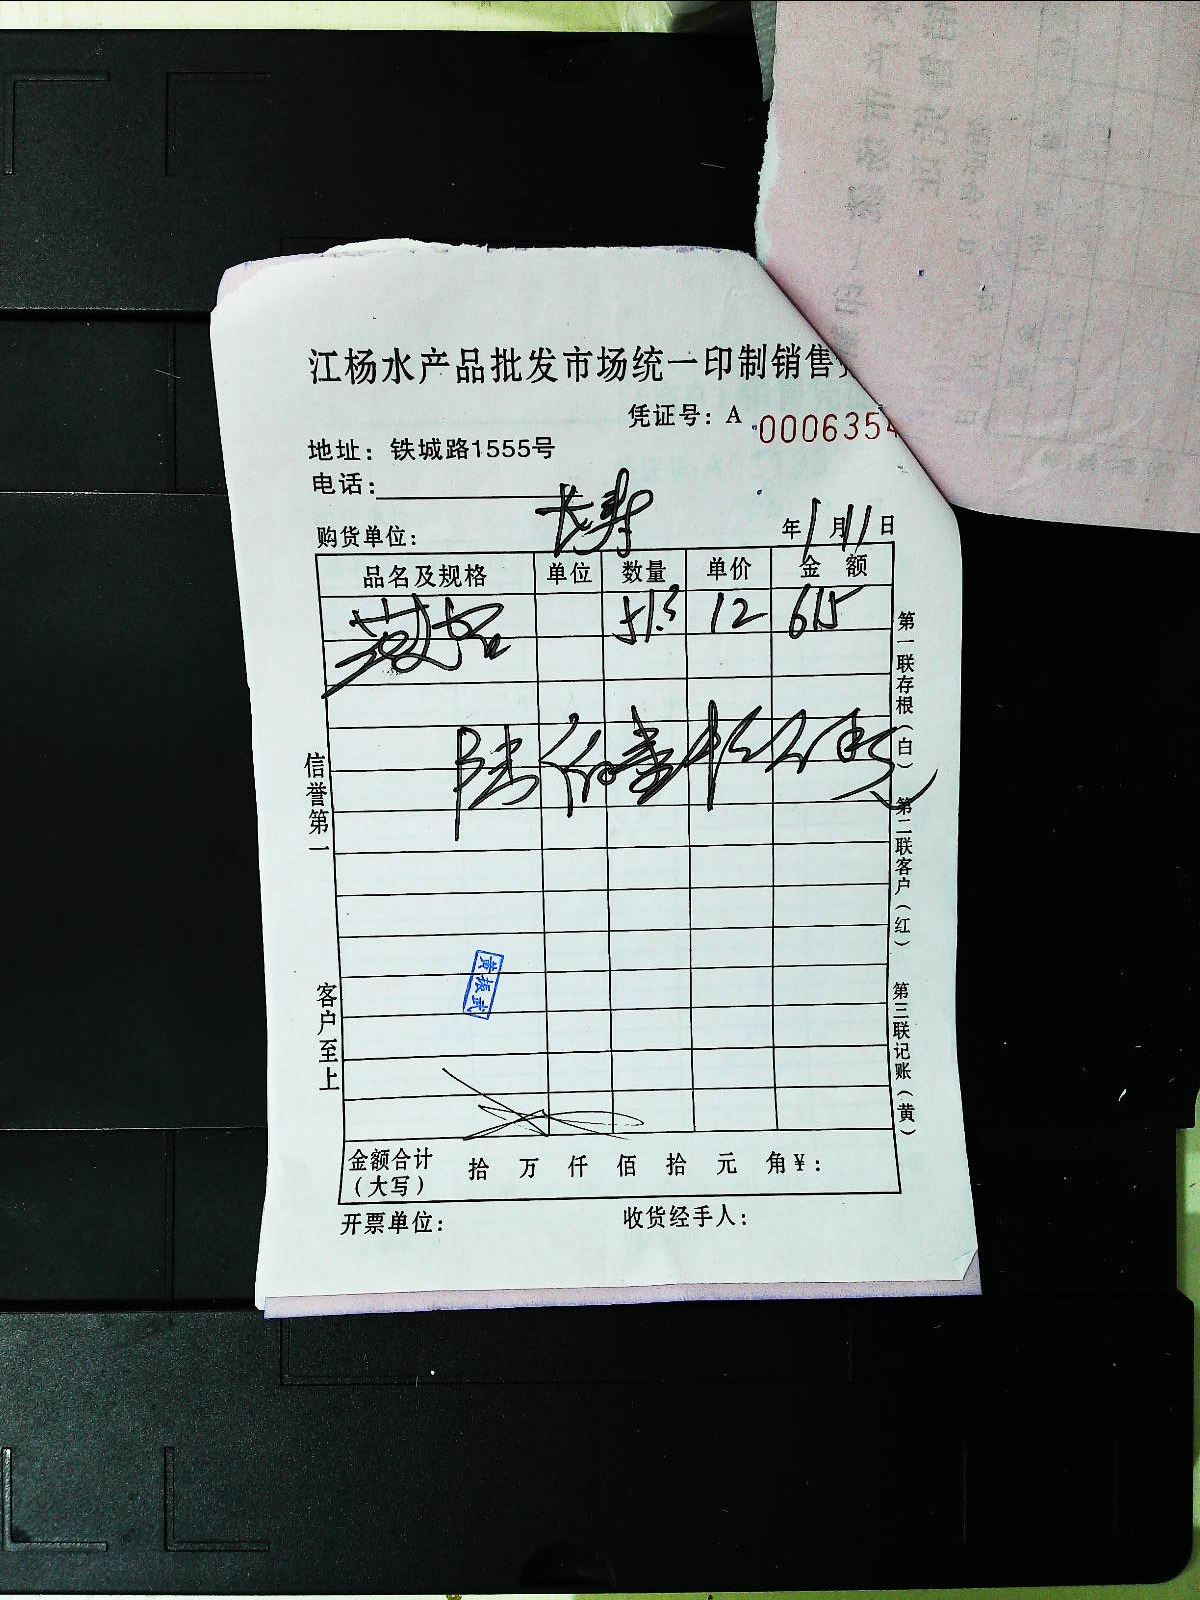 江杨水产品批发市场统一印制销售
凭证号：A 0006354
地址：铁城路1555号
电话：
购货单位： 长寿 年1月11日
品名及规格 单位 数量 单价 金 额
51.3 12 615
陆佰壹拾伍元
信誉第一
客户至上
黄振武
第一联存根（白） 第二联客户（红） 第三联记账（黄）
金额合计（大写） 拾 万 仟 佰 拾 元 角 ¥：
开票单位： 收货经手人：